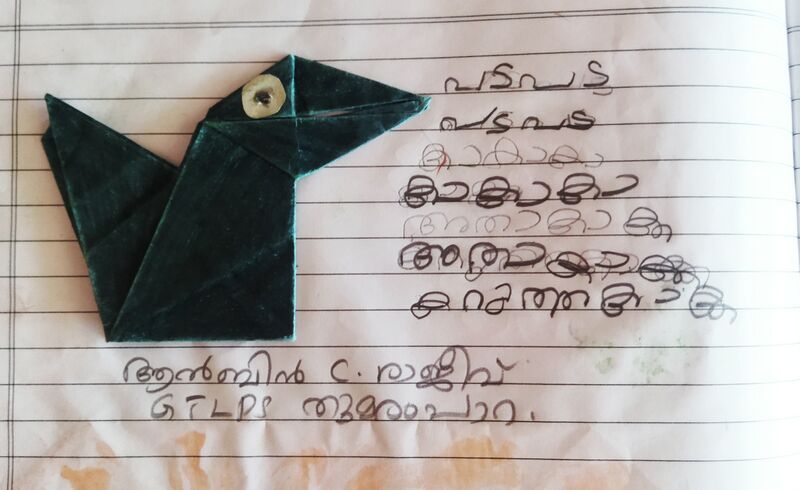 പടപട
പടപട
കാകാകാ
കാകാകാ
അതാകാക്ക
അതാകാക്ക
കറുത്തകാക്ക
ആൽബിൻ C. രാജീവ്
GTLPS തുമരംപാറ.